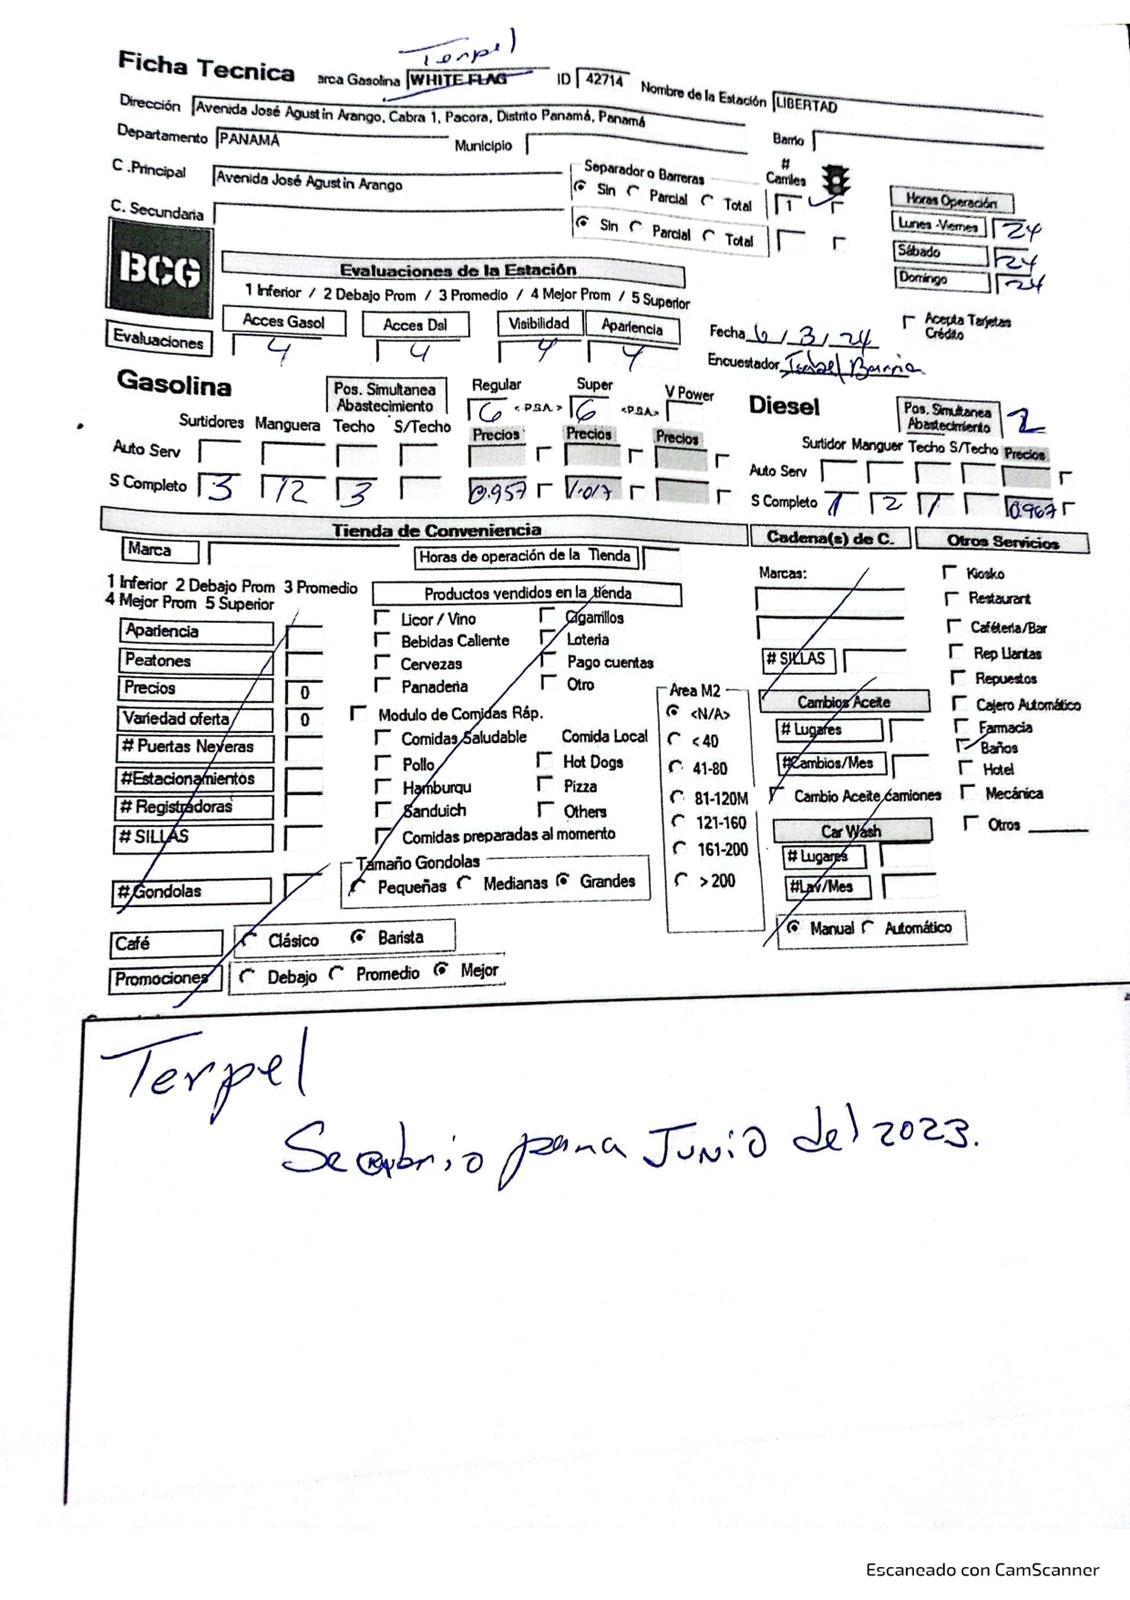 Terpel
Ficha Tecnica arca Gasolina WHITE FLAG ID 42714 Nombre de la Estación LIBERTAD
Dirección Avenida José Agustin Arango, Cabra 1, Pacora, Distrito Panamá, Panamá
Departamento PANAMÁ Municipio Barrio
C .Principal Avenida José Agustin Arango Separador o Barreras Sin Parcial Total # Carriles 1
C. Secundaria Sin Parcial Total
Horas Operación
Lunes -Viernes 24
Sábado 24
Domingo 24
BCG
Evaluaciones de la Estación
1 Inferior / 2 Debajo Prom / 3 Promedio / 4 Mejor Prom / 5 Superior
Acces Gasol Acces Dsl Visibilidad Apariencia
Evaluaciones 4 4 4 4
Fecha 6/3/24
Acepta Tarjetas Crédito
Encuestador Isabel Barria
Gasolina Pos. Simultanea Abastecimiento Regular 6 <P.S.A.> Super 6 <P.S.A> V Power
Surtidores Manguera Techo S/Techo Precios Precios Precios
Auto Serv
S Completo 3 12 3 0.957 1.017
Diesel Pos. Simultanea Abastecimiento 2
Surtidor Manguer Techo S/Techo Precios
Auto Serv
S Completo 1 2 1 0.967
Tienda de Conveniencia Cadena(s) de C. Otros Servicios
Marca Horas de operación de la Tienda
1 Inferior 2 Debajo Prom 3 Promedio
4 Mejor Prom 5 Superior
Apariencia
Peatones
Precios 0
Variedad oferta 0
# Puertas Neveras
#Estacionamientos
# Registradoras
# SILLAS
# Gondolas
Productos vendidos en la tienda
Licor / Vino Cigarrillos
Bebidas Caliente Loteria
Cervezas Pago cuentas
Panaderia Otro
Modulo de Comidas Ráp.
Comidas Saludable Comida Local
Pollo Hot Dogs
Hamburqu Pizza
Sanduich Others
Comidas preparadas al momento
Tamaño Gondolas
Pequeñas Medianas Grandes
Area M2
<N/A>
< 40
41-80
81-120M
121-160
161-200
> 200
Marcas:
# SILLAS
Cambios Aceite
# Lugares
#Cambios/Mes
Cambio Aceite camiones
Car Wash
# Lugares
#Lav/Mes
Manual Automático
Kiosko
Restaurant
Caféteria/Bar
Rep Llantas
Repuestos
Cajero Automático
Farmacia
Baños
Hotel
Mecánica
Otros
Café Clásico Barista
Promociones Debajo Promedio Mejor
Terpel
Se cambio para Junio del 2023.
Escaneado con CamScanner